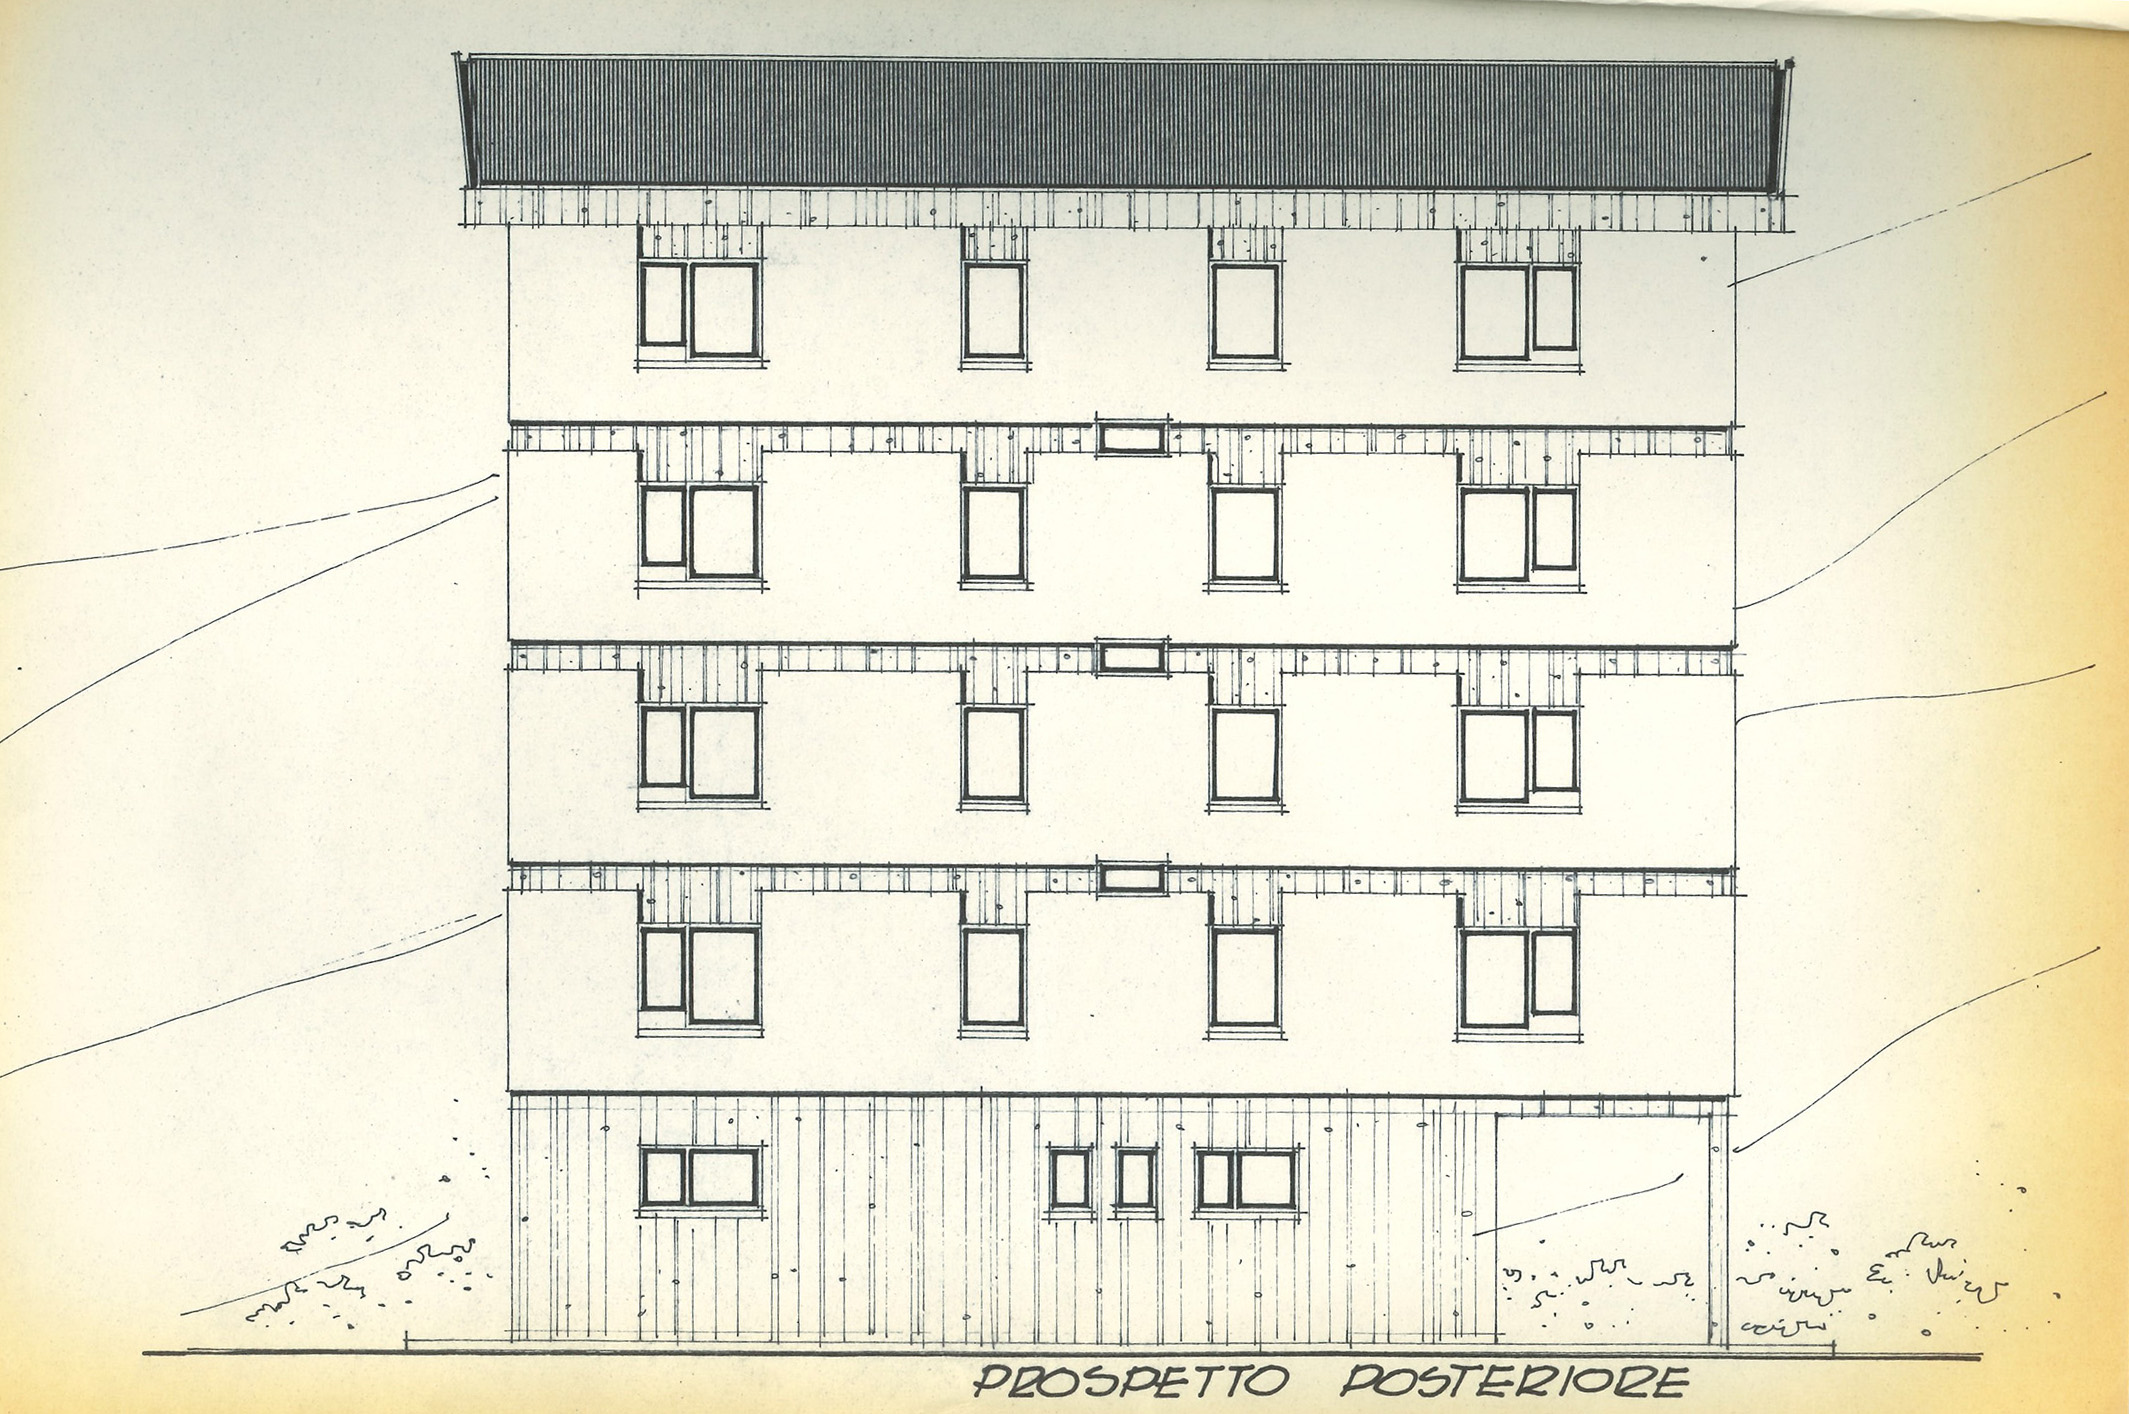 PROSPETTO POSTERIORE